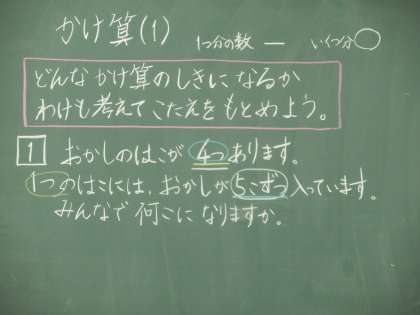 かけ算(1) 1つ分の数 — いくつ分○
どんな かけ算のしきに なるか
わけも考えて こたえを もとめよう。
1 おかしのはこが 4つ あります。
1つのはこには、おかしが 5こずつ 入っています。
みんなで 何こに なりますか。